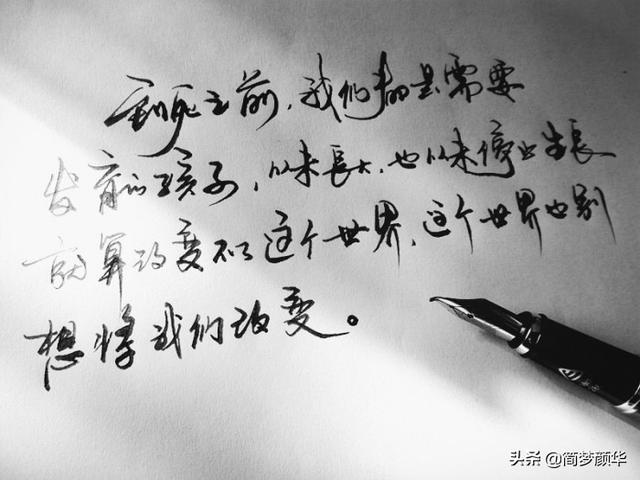 到死之前,我们都是需要
发育的孩子,从未長大,也从未停止生長
就算改变不了这个世界,这个世界也别
想将我们改变。
头条 @简梦颜华